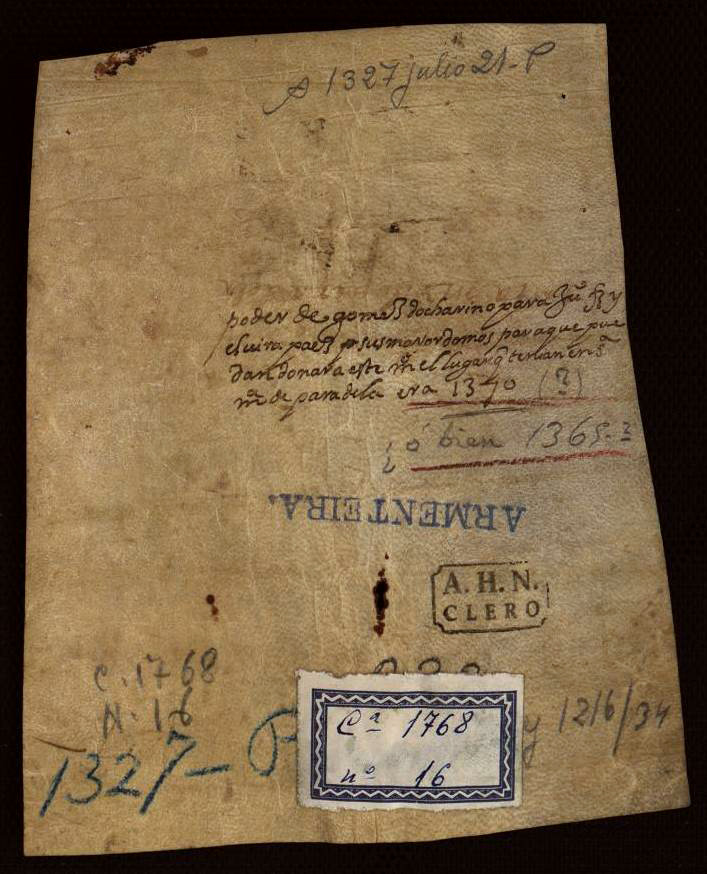 A 1327 julio 21-P
poder de gomez docharino para Juº frz y
eluira paez sus mayordomos para que pue
dan donar a este mrº el lugar q tenian en s.
mª de paradela era 1370 (?)
¿ó bien 1365-?
ARMENTEIRA.
A. H. N.
CLERO
C. 1768
N. 16
Cª 1768
nº 16
y 1216/34
1327- P